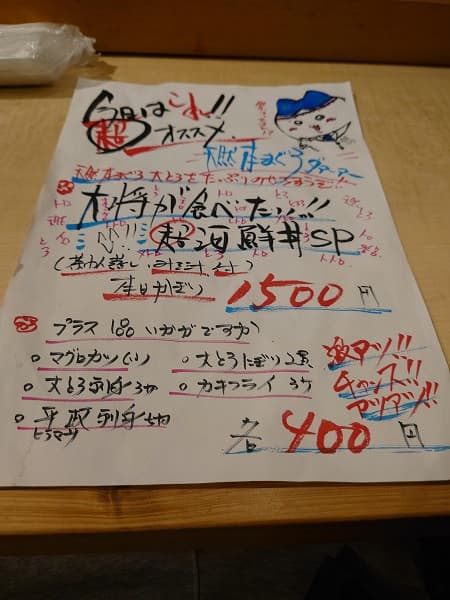 今日はこれ!!
超オススメ
天然本まぐろ
天然本まぐろ大とろをたっぷりのせ
大将が食べたい!!
超海鮮丼SP
(茶わん蒸し・みそ汁・付)
本日かぎり
1500円
プラス1品いかがですか
マグロカツ(1)
大とろにぎり2貫
大とろ刺身3切
カキフライ 3ケ
平政刺身5切
ヒラマサ
激アツ!!
チャンス!!
アツアツ!!
各400円